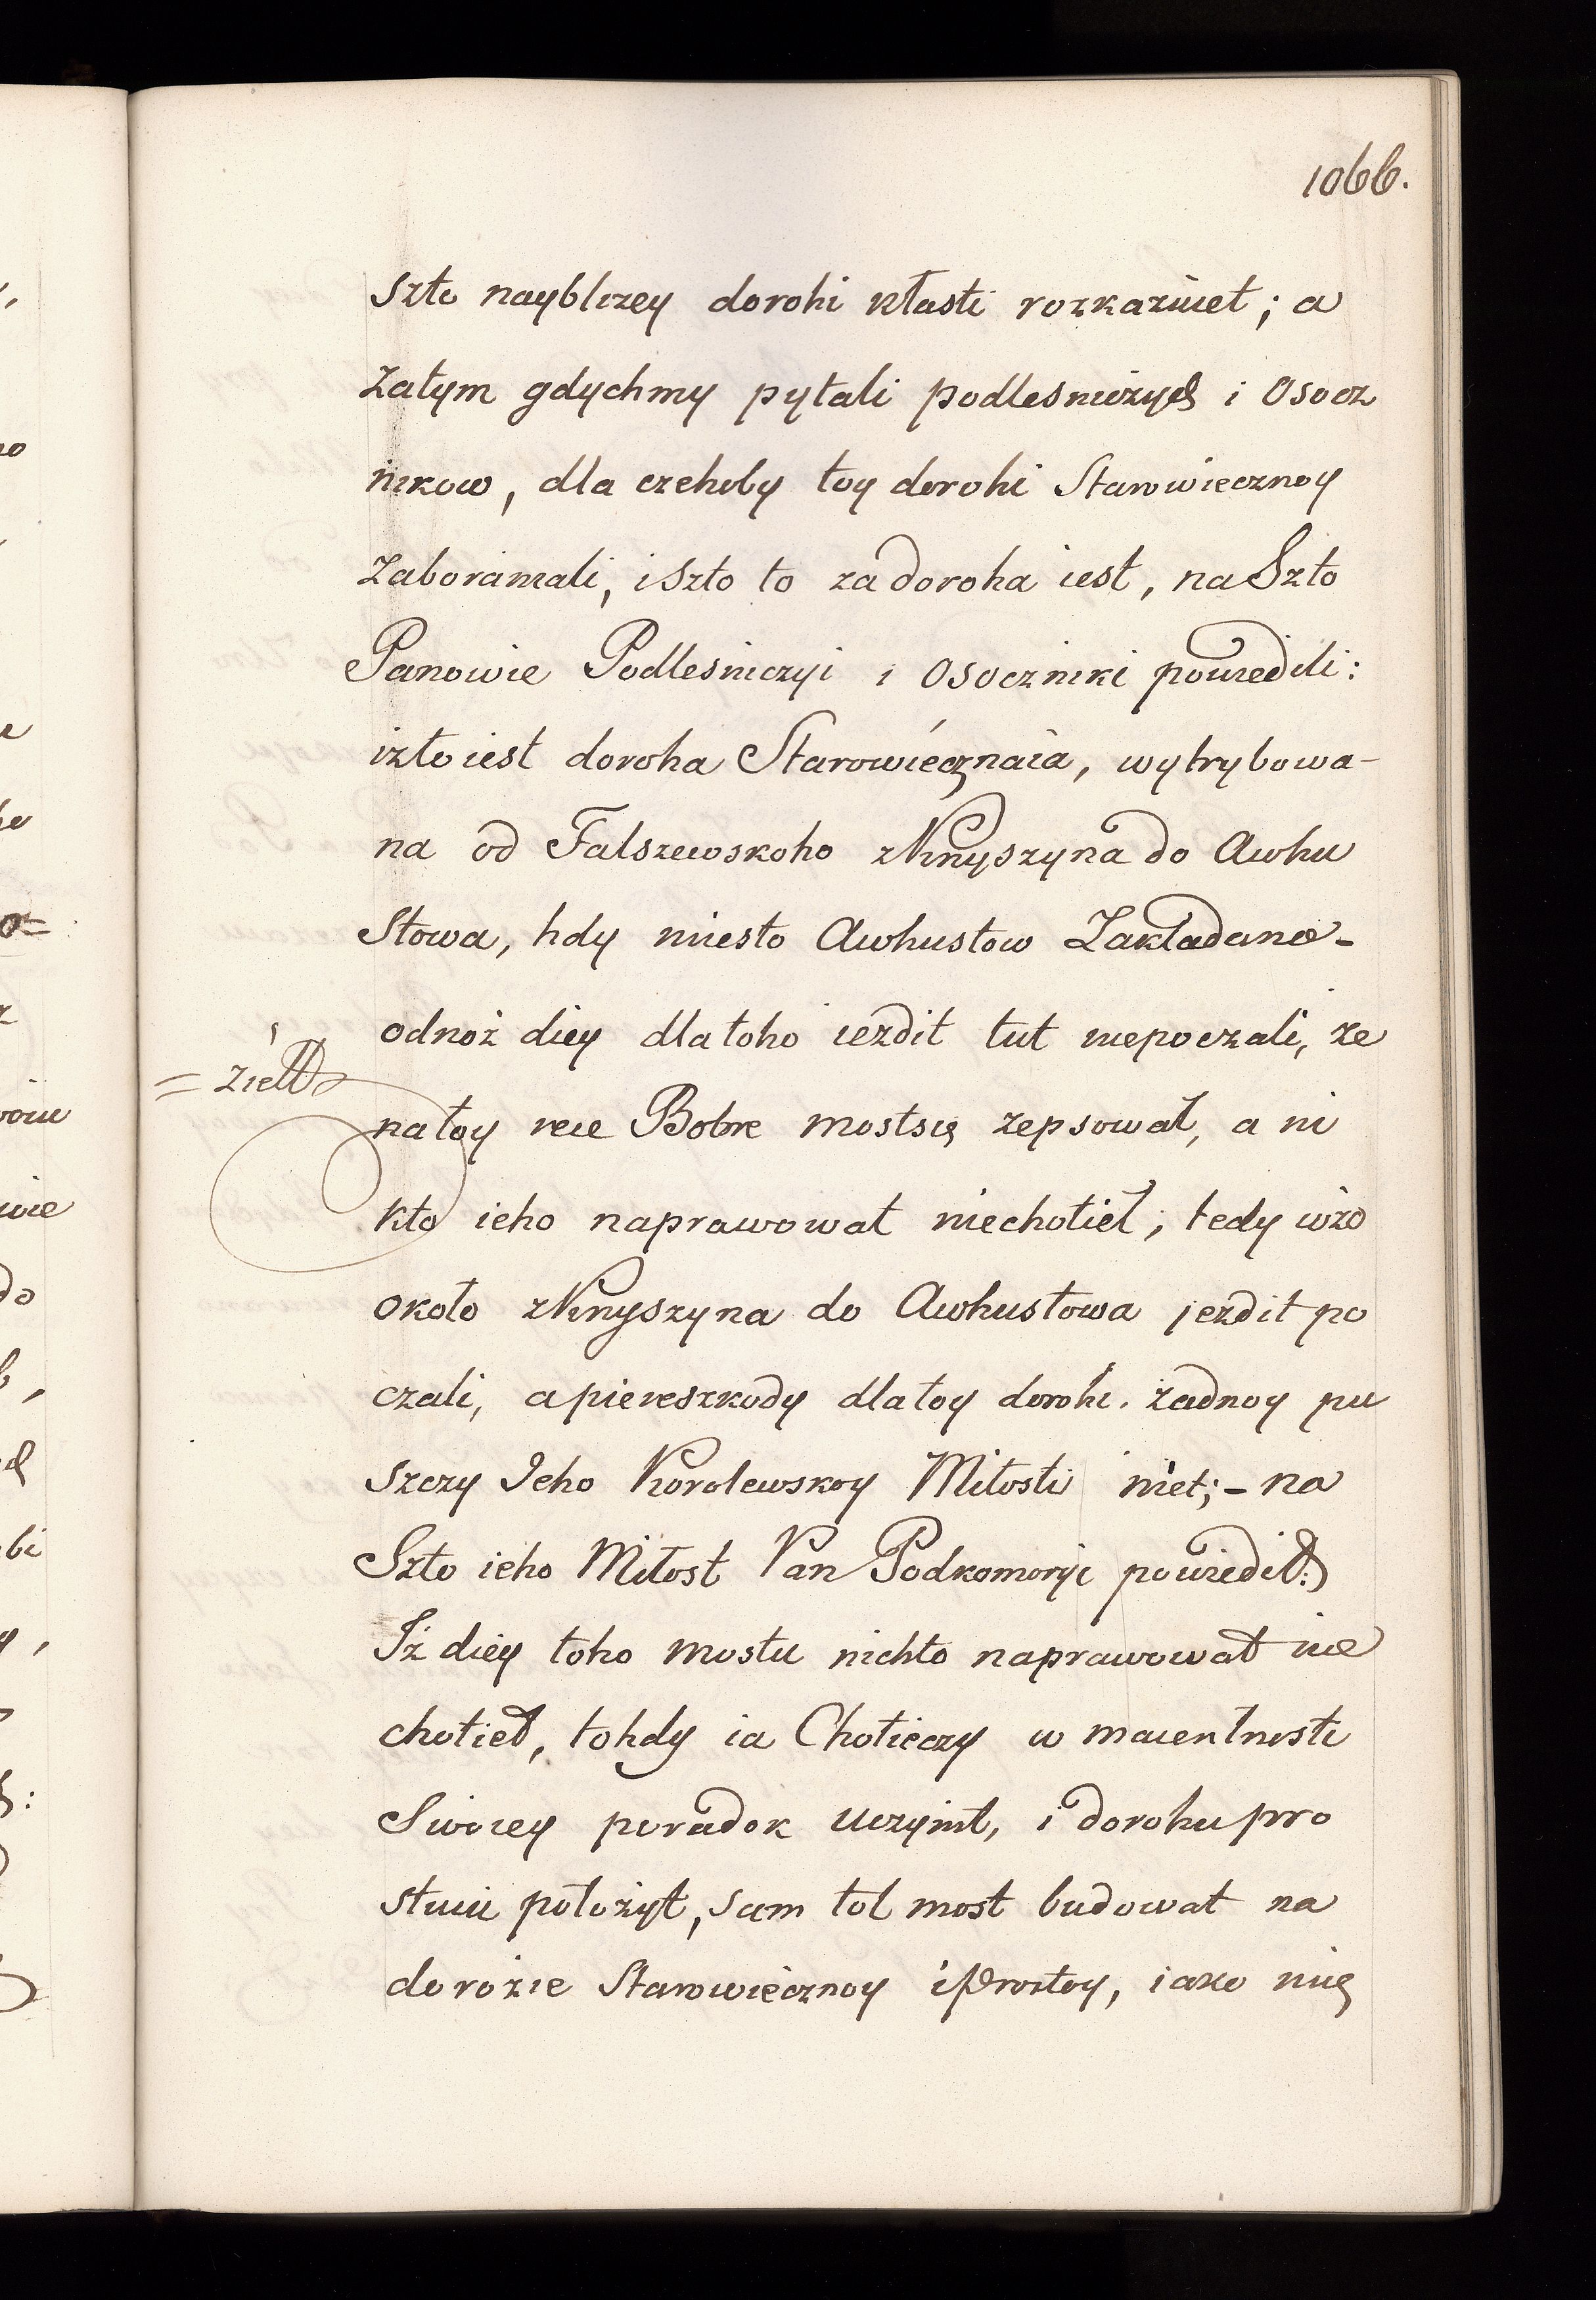 1066.
szto nayblizey dorohi kłasti rozkazuiet; a
zatym gdychmy pytali podlesniczych i Osocz
nikow, dla czehoby toy dorohi Starowiecznoy
zaboraniali, i szto to za doroha iest, na Szto
Panowie Podlesniczyi i Osoczniki powiedili:
iżto iest doroha Starowiecznaia, wytrybowa-
na od Falszewskoho z Knyszyna do Awhu
stowa, hdy miesto Awhustow Zakładano-
odnoż diey dla toho iezdit tut niepoczali, że
= ziełł
na toy rece Bobre most się zepsował, a ni
kto ieho naprawowat niechotieł, tedy wżo
około z Knyszyna do Awhustowa jezdit po
czali, a piereszkody dla toy dorohi. żadnoy pu
szczy Jeho Korolewskoy Miłosti niet; - na
Szto ieho Miłost Pan Podkomoryi powiedił:
Iż diey toho mostu nichto naprawowat nie
chotieł, tohdy ia Chotieczy w maientnosti
Swoiey poradok uczynit, i dorohu pro
stuiu położył, sam tot most budował na
dorozie Starowiecznoy i Prostoy, iako nię